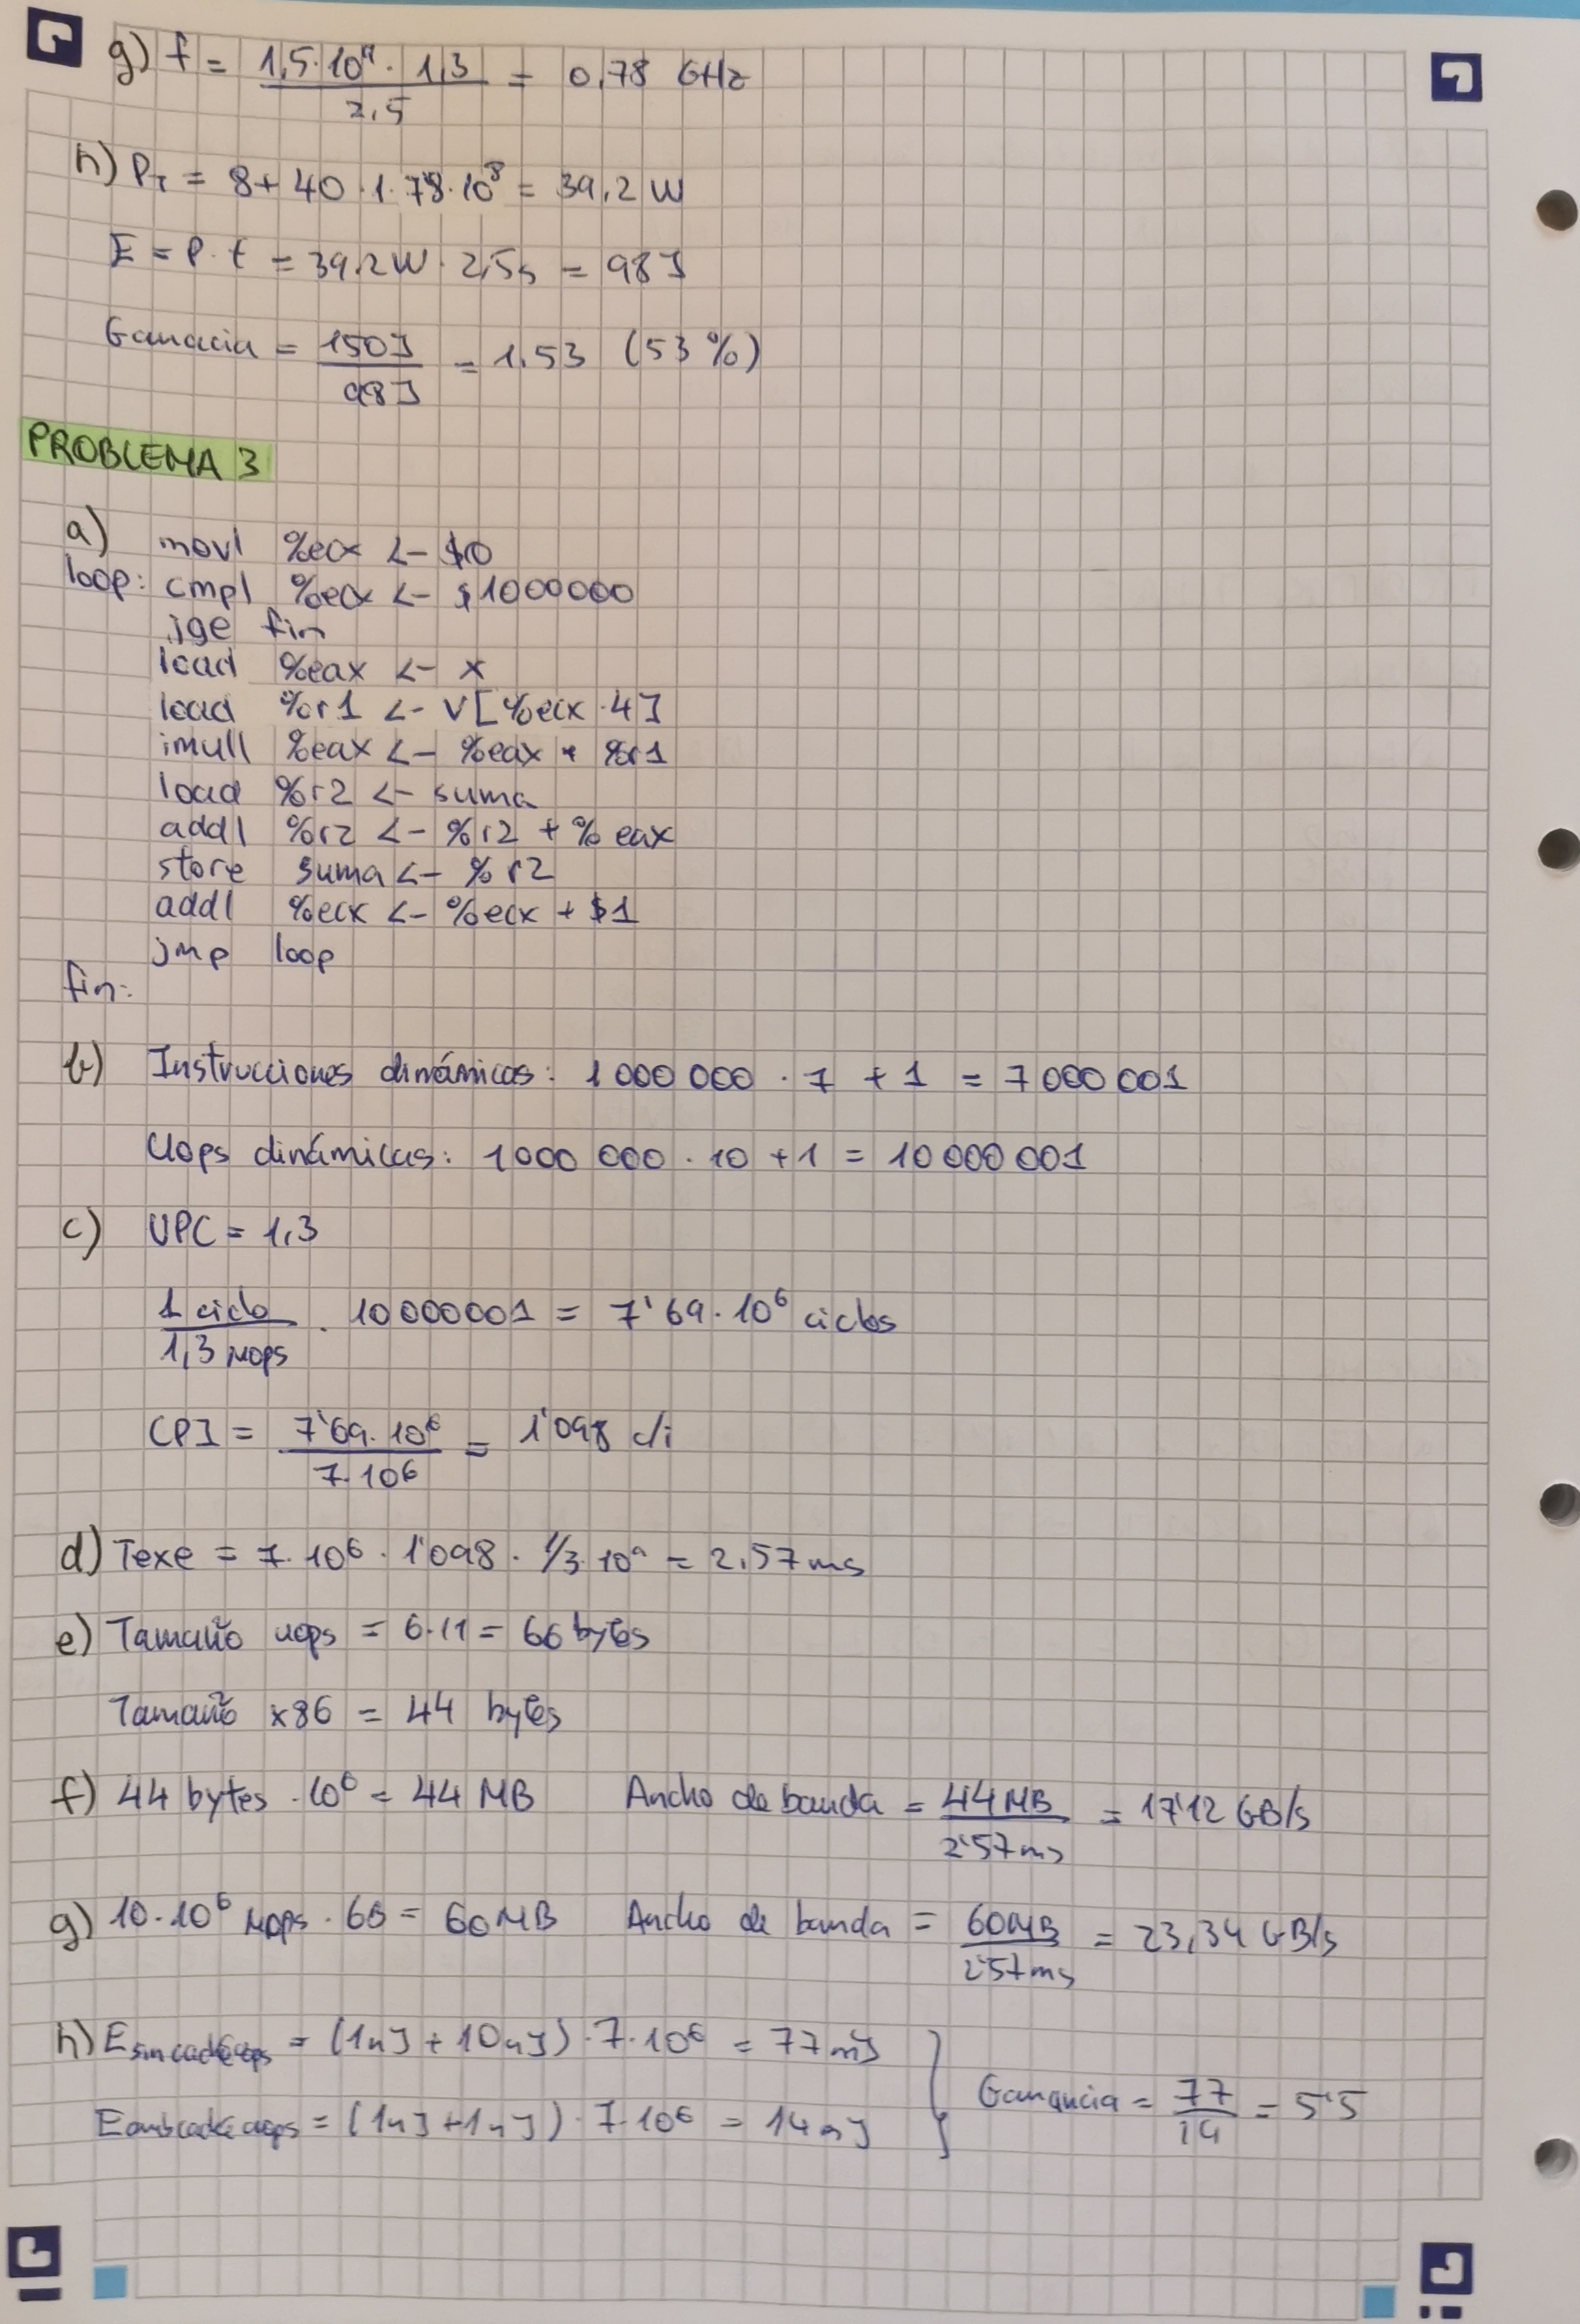 g) f = 1,5·10⁹ · 1,3 / 2,5 = 0,78 GHz
h) P_T = 8 + 40 · 1 · 78·10⁸ = 39,2 W
E = P · t = 39,2 W · 2,5s = 98J
Ganacia = 150J / 98J = 1,53 (53 %)
PROBLEMA 3
a) movl %ecx <- $0
loop: cmpl %ecx <- $1000000
jge fin
load %eax <- x
load %r1 <- v[%ecx·4]
imull %eax <- %eax * %r1
load %r2 <- suma
addl %r2 <- %r2 + %eax
store suma <- %r2
addl %ecx <- %ecx + $1
jmp loop
fin:
b) Instrucciones dinámicas: 1000000 · 7 + 1 = 7000001
Uops dinámicas: 1000 000 · 10 + 1 = 10000001
c) UPC = 1,3
1 ciclo / 1,3 uops · 10000001 = 7'69·10⁶ ciclos
CPI = 7'69·10⁶ / 7·10⁶ = 1'098 c/i
d) Texe = 7·10⁶ · 1'098 · 1/3·10⁹ = 2,57ms
e) Tamaño uops = 6·11 = 66 bytes
Tamaño x86 = 44 bytes
f) 44 bytes · 10⁶ = 44 MB Ancho de banda = 44MB / 2'57ms = 17'12 GB/s
g) 10·10⁶ uops · 6B = 60MB Ancho de banda = 60MB / 2'57ms = 23,34 GB/s
h) E = (1nJ + 10nJ) · 7·10⁶ = 77mJ
E = (1nJ + 1nJ) · 7·10⁶ = 14mJ } Ganancia = 77 / 14 = 5'5